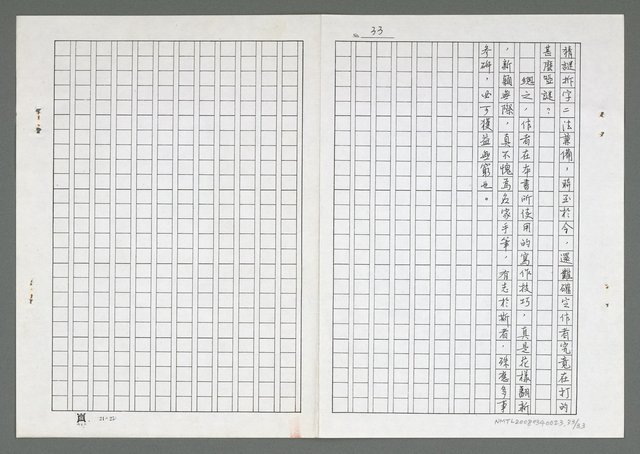 33
猜謎拆字二法兼備，時至於今，還難確定作者究竟在打的
甚麼啞謎？
總之，作者在本書所使用的寫作技巧，真是花樣翻新
，新穎無際，真不愧為名家手筆，有志於斯者，殊應多事
參研，必可獲益無窮也。
21-22
NMTL20080340023, 33/33